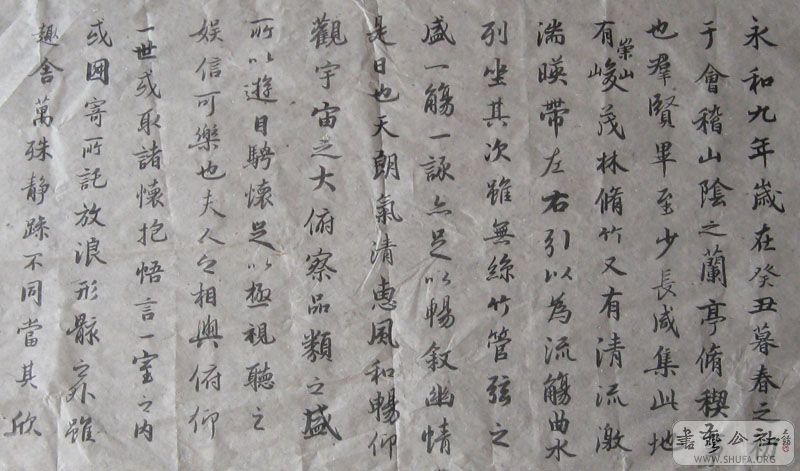 永和九年歲在癸丑暮春之
于會稽山陰之蘭亭脩稧
也羣賢畢至少長咸集此地
有崇山峻茂林脩竹又有清流激
湍暎帶左右引以為流觴曲水
列坐其次雖無絲竹管弦之
盛一觴一詠亦足以暢叙幽情
是日也天朗氣清惠風和暢仰
觀宇宙之大俯察品類之盛
所以遊目騁懷足以極視聽之
娛信可樂也夫人之相與俯仰
一世或取諸懷抱悟言一室之内
或因寄所託放浪形骸之外雖
趣舍萬殊静躁不同當其欣
書藝公社
WWW.SHUFA.ORG